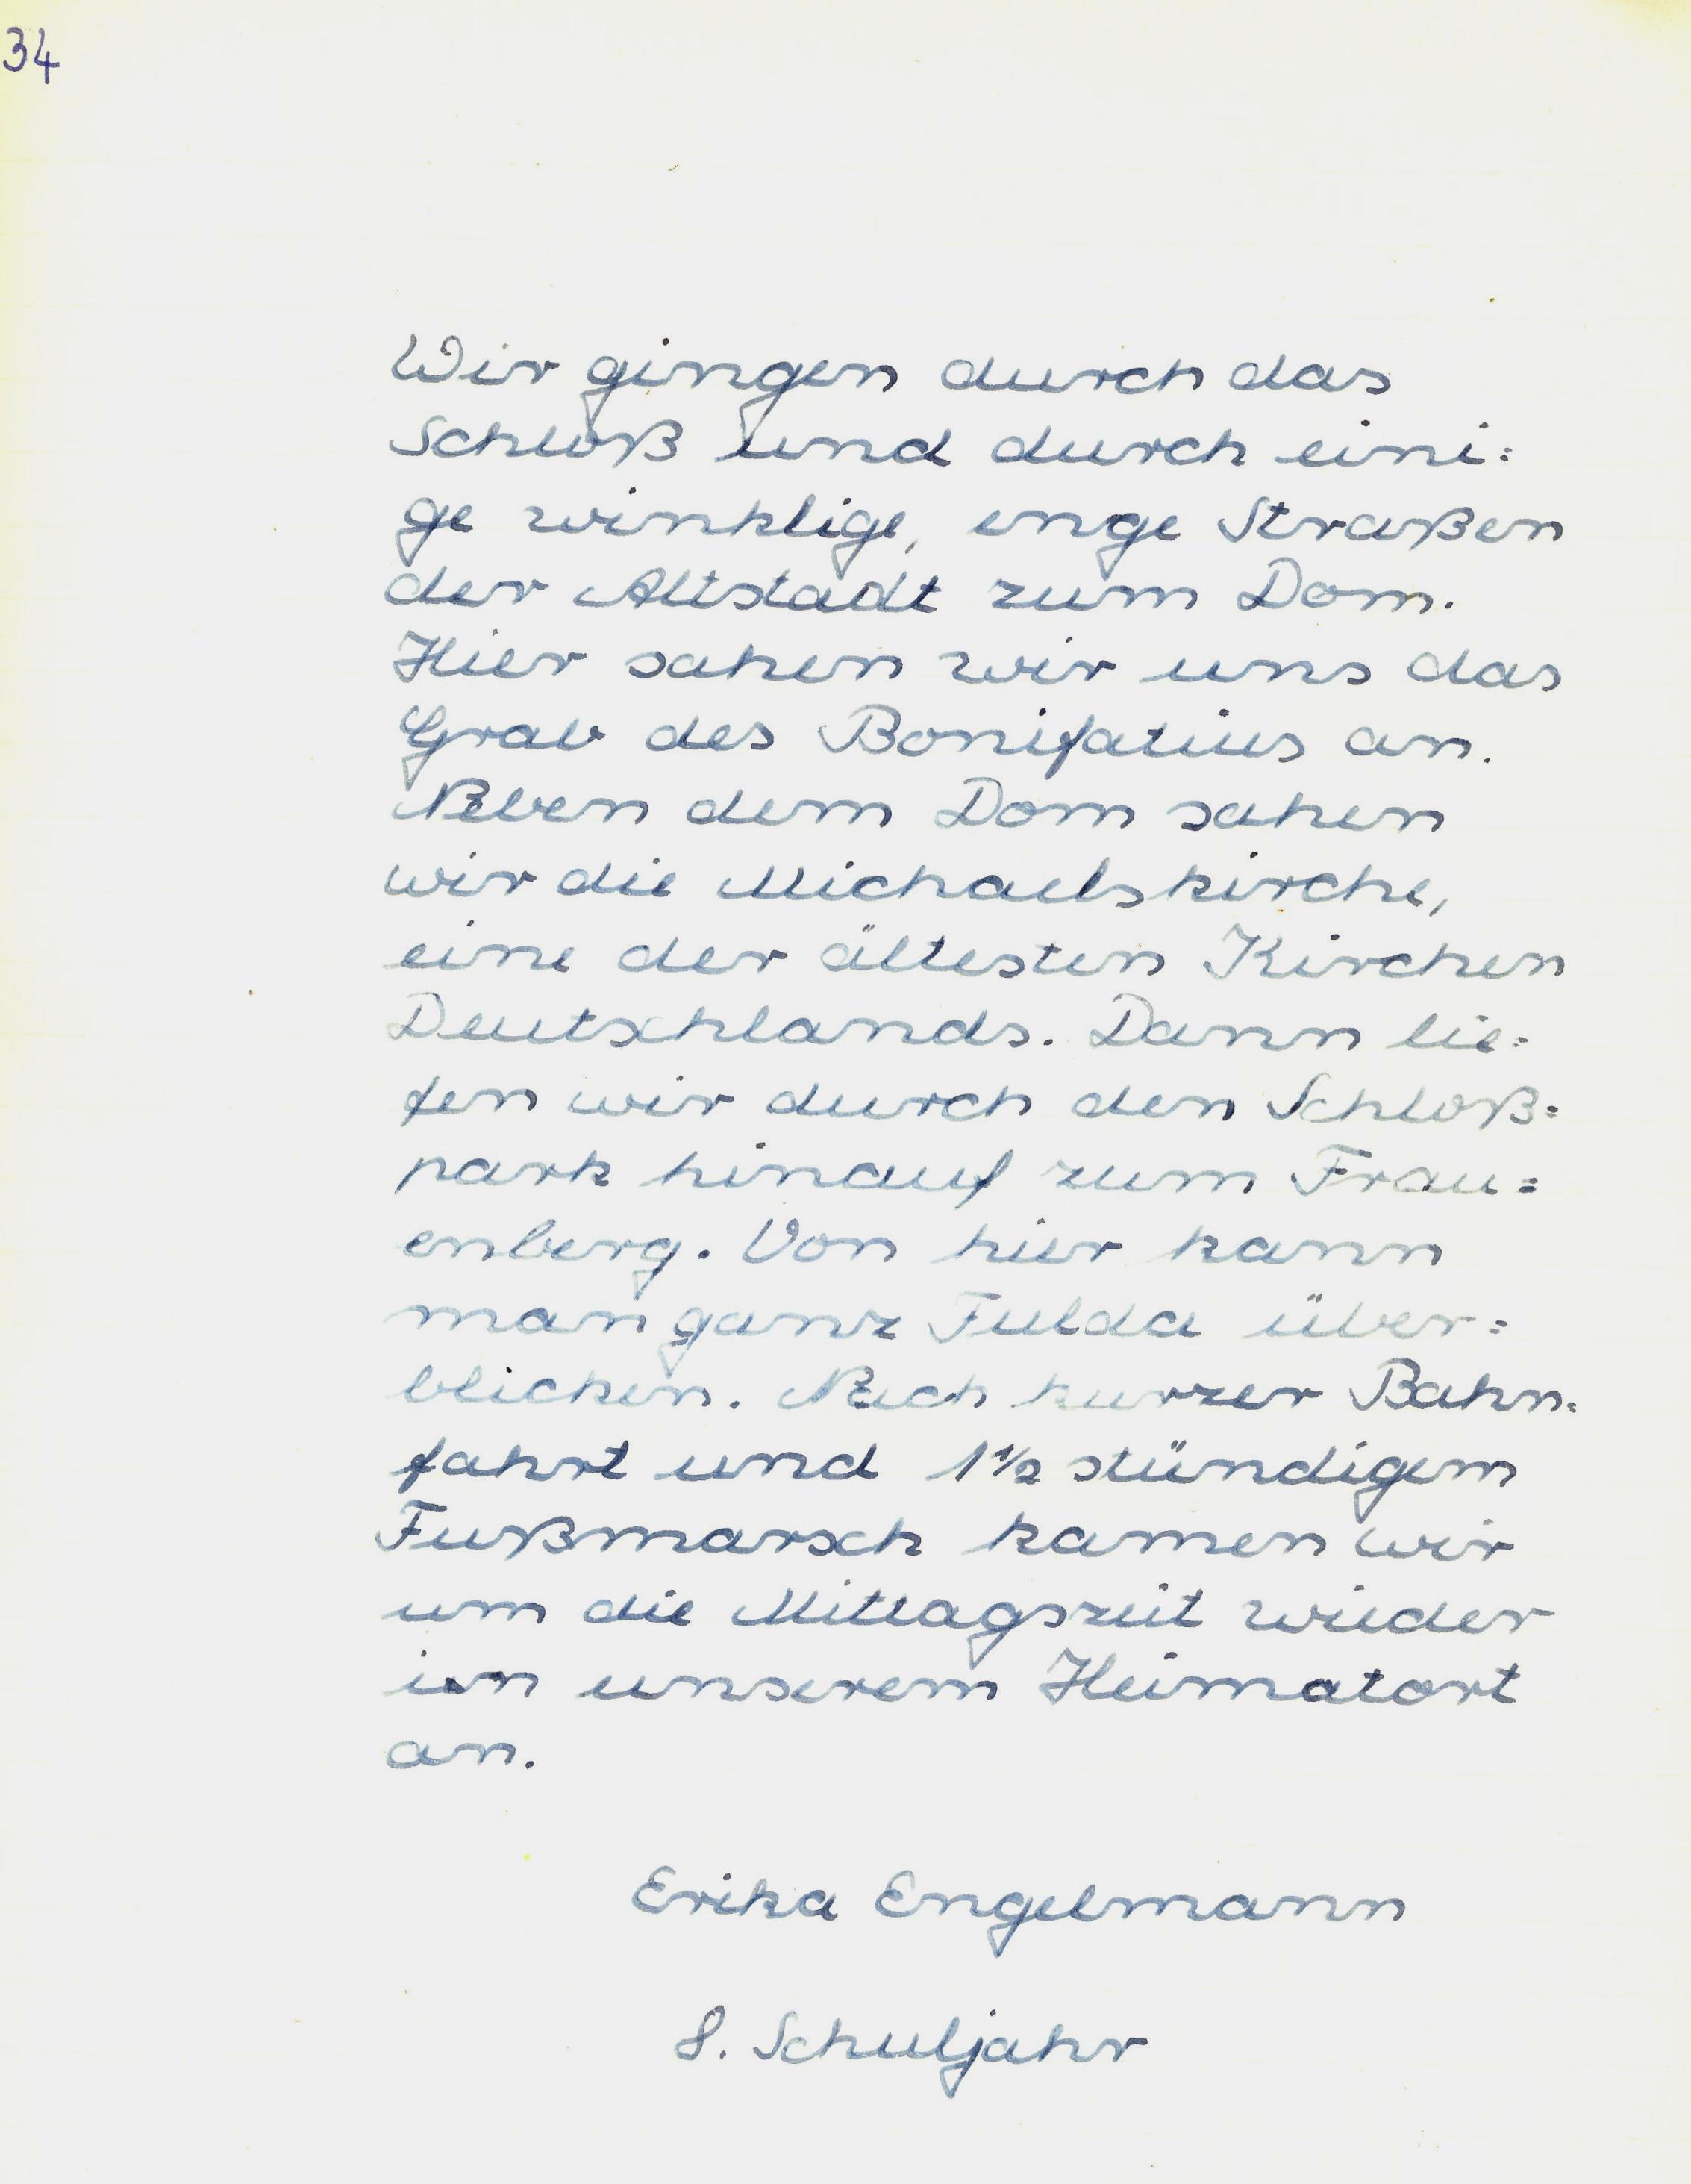 34
Wir gingen durch das
Schloß und durch eini:
ge winklige, enge Straßen
der Altstadt zum Dom.
Hier sahen wir uns das
Grab des Bonifatius an.
Neben dem Dom sahen
wir die Michaelskirche,
eine der ältesten Kirchen
Deutschlands. Dann lie:
fen wir durch den Schloß:
park hinauf zum Frau:
enberg. Von hier kann
man ganz Fulda über:
blicken. Nach kurzer Bahn:
fahrt und 1 1/2 stündigem
Fußmarsch kamen wir
um die Mittagszeit wieder
in unserem Heimatort
an.
Erika Engelmann
8. Schuljahr